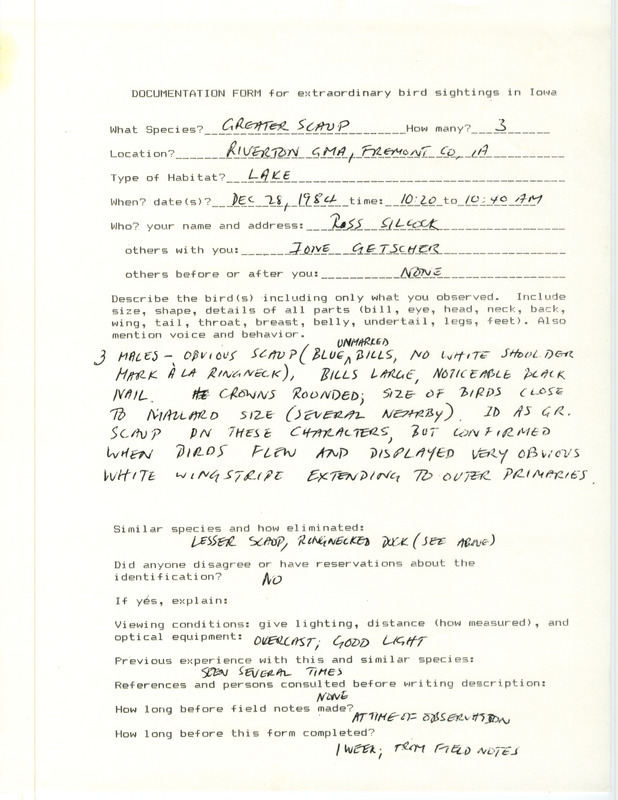 DOCUMENTATION FORM for extraordinary bird sightings in Iowa
What Species? GREATER SCAUP How many? 3
Location? RIVERTON GMA, FREMONT CO, IA
Type of Habitat? LAKE
When? date(s)? DEC 28, 1984 time: 10:20 to 10:40 AM
Who? your name and address: ROSS SILCOCK
others with you: JONE GETSCHER
others before or after you: NONE
Describe the bird(s) including only what you observed. Include
size, shape, details of all parts (bill, eye, head, neck, back,
wing, tail, throat, breast, belly, undertail, legs, feet). Also
mention voice and behavior.
3 MALES - OBVIOUS SCAUP (BLUE UNMARKED BILLS, NO WHITE SHOULDER
MARK À LA RINGNECK), BILLS LARGE, NOTICEABLE BLACK
NAIL. CROWNS ROUNDED; SIZE OF BIRDS CLOSE
TO MALLARD SIZE (SEVERAL NEARBY). ID AS GR.
SCAUP ON THESE CHARACTERS, BUT CONFIRMED
WHEN BIRDS FLEW AND DISPLAYED VERY OBVIOUS
WHITE WINGSTRIPE EXTENDING TO OUTER PRIMARIES.
Similar species and how eliminated:
LESSER SCAUP, RINGNECKED DUCK (SEE ABOVE)
Did anyone disagree or have reservations about the
identification? NO
If yes, explain:
Viewing conditions: give lighting, distance (how measured), and
optical equipment: OVERCAST; GOOD LIGHT
Previous experience with this and similar species:
SEEN SEVERAL TIMES
References and persons consulted before writing description:
NONE
How long before field notes made?
AT TIME OF OBSERVATION
How long before this form completed?
1 WEEK; FROM FIELD NOTES